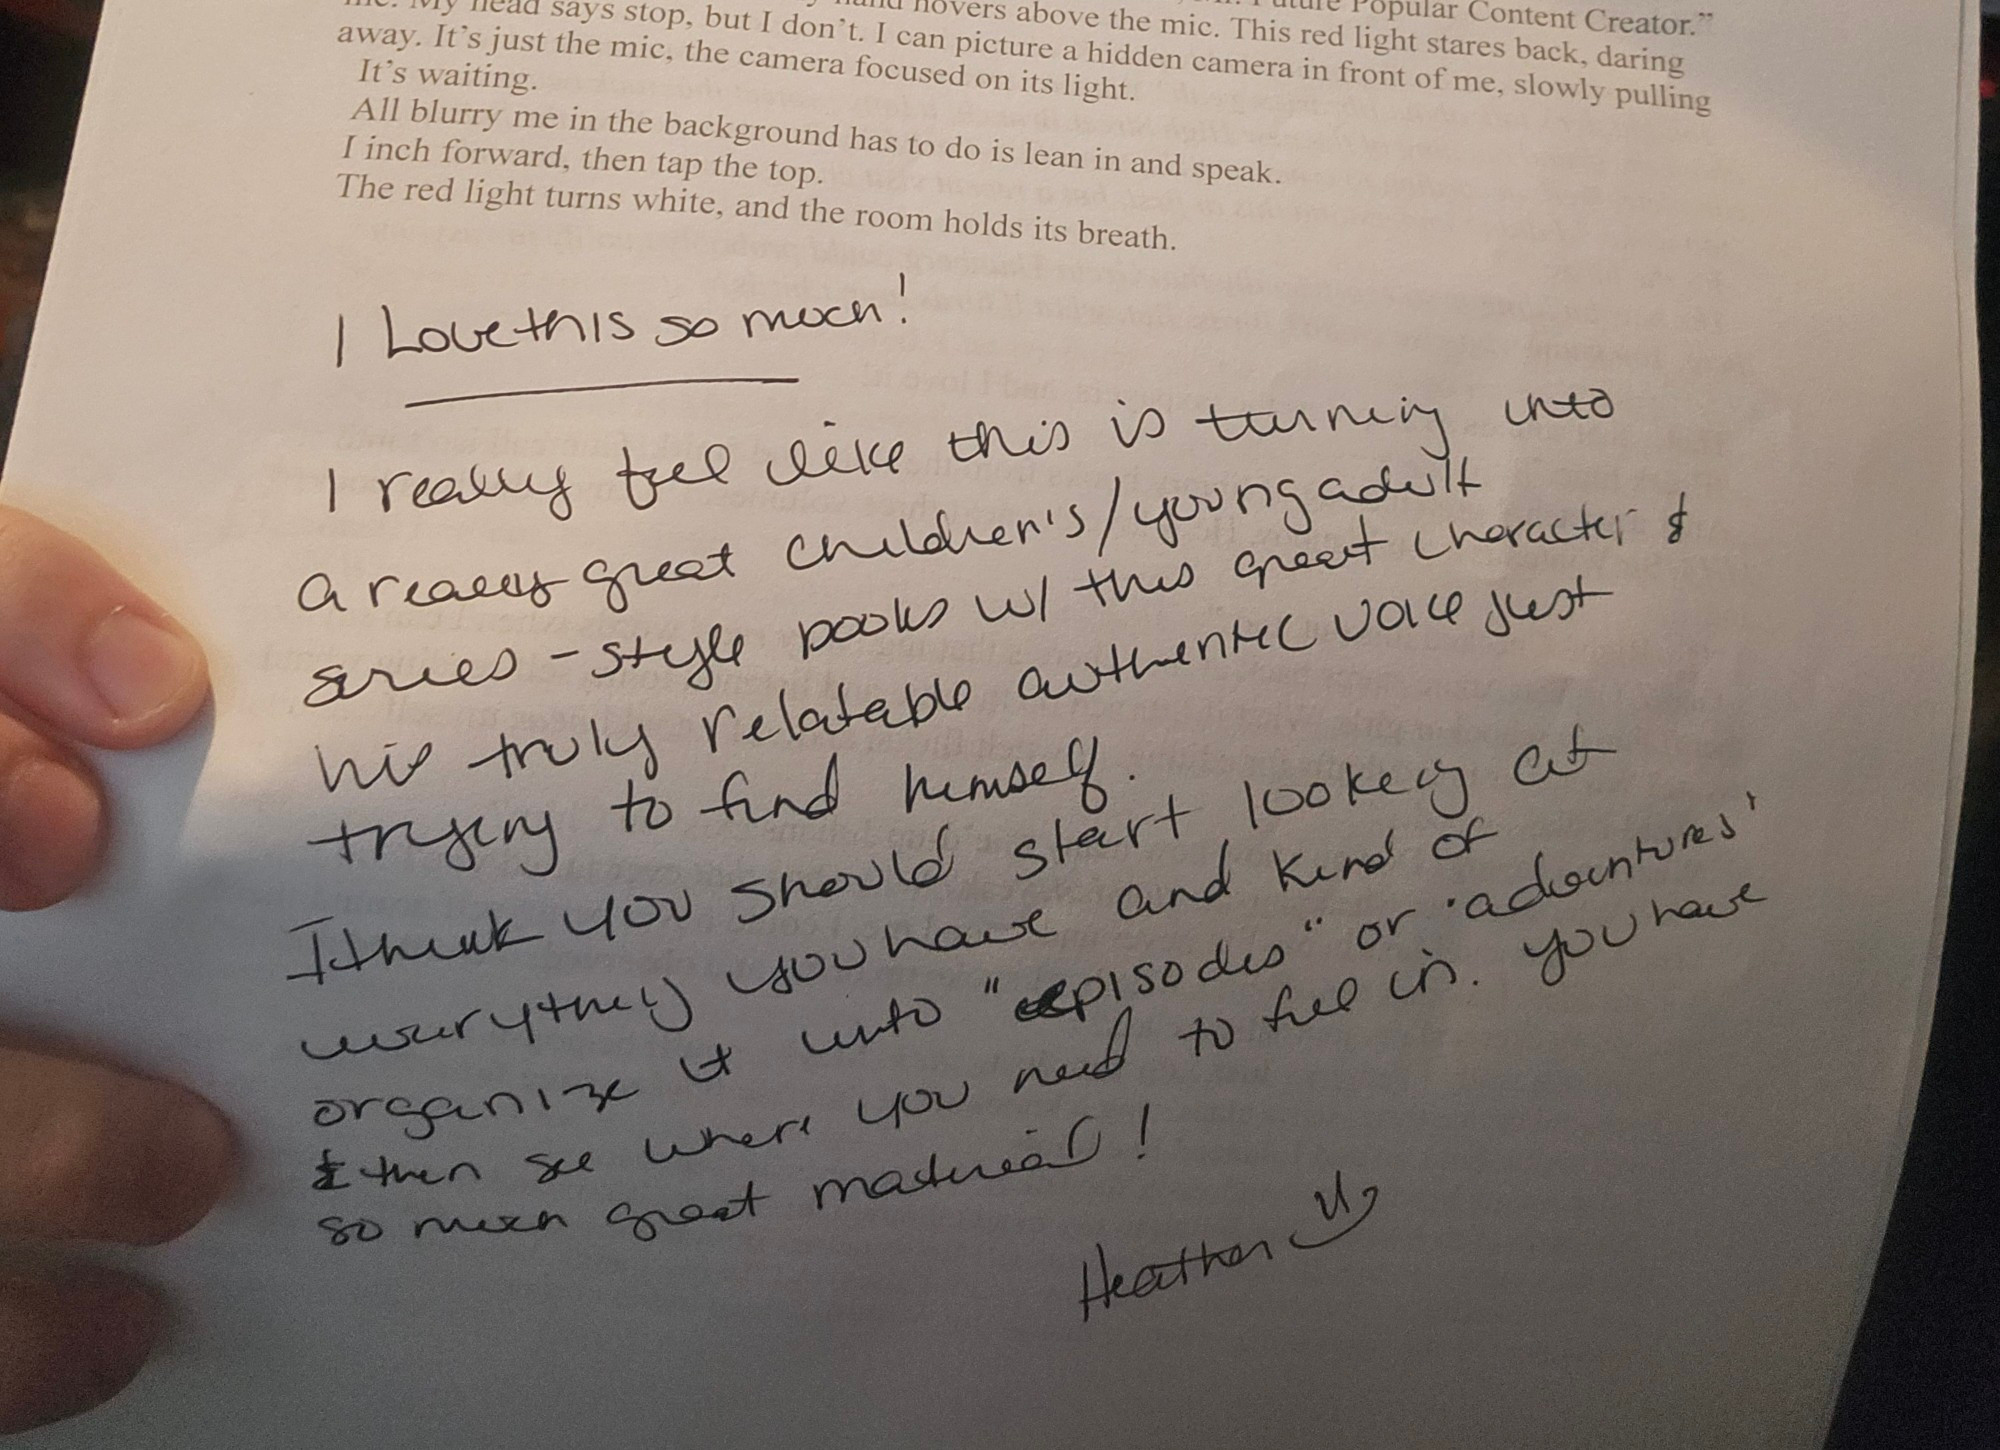 My head says stop, but I don't. I can picture a hidden camera in front of me, slowly pulling
hovers above the mic. This red light stares back, daring
Popular Content Creator.”
away. It's just the mic, the camera focused on its light.
It's waiting.
All blurry me in the background has to do is lean in and speak.
I inch forward, then tap the top.
The red light turns white, and the room holds its breath.
I Love this so much!
I really feel like this is turning into
a really great children's/young adult
series-style books w/ this great character &
his truly relatable authentic voice just
trying to find himself.
I think you should start looking at
everything you have and kind of
organize it into "episodes" or 'adventures'
& then see where you need to fill in. you have
so much great material!
Heather